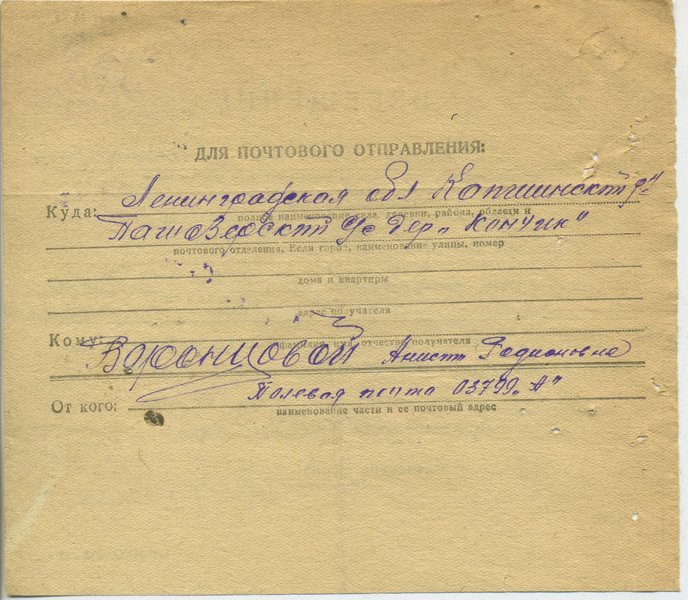 ДЛЯ ПОЧТОВОГО ОТПРАВЛЕНИЯ:
Куда: Ленинградская обл Капшинский р-н
полное наименование села, деревни, района, области и
с/с дер. „Кончик"
почтового отделения. Если город, наименование улицы, номер
дома и квартиры
адрес получателя
Кому: Воронцовой Родионовне
фамилия, имя, отчество получателя
От кого: Полевая почта 03799 „А"
наименование части и ее почтовый адрес